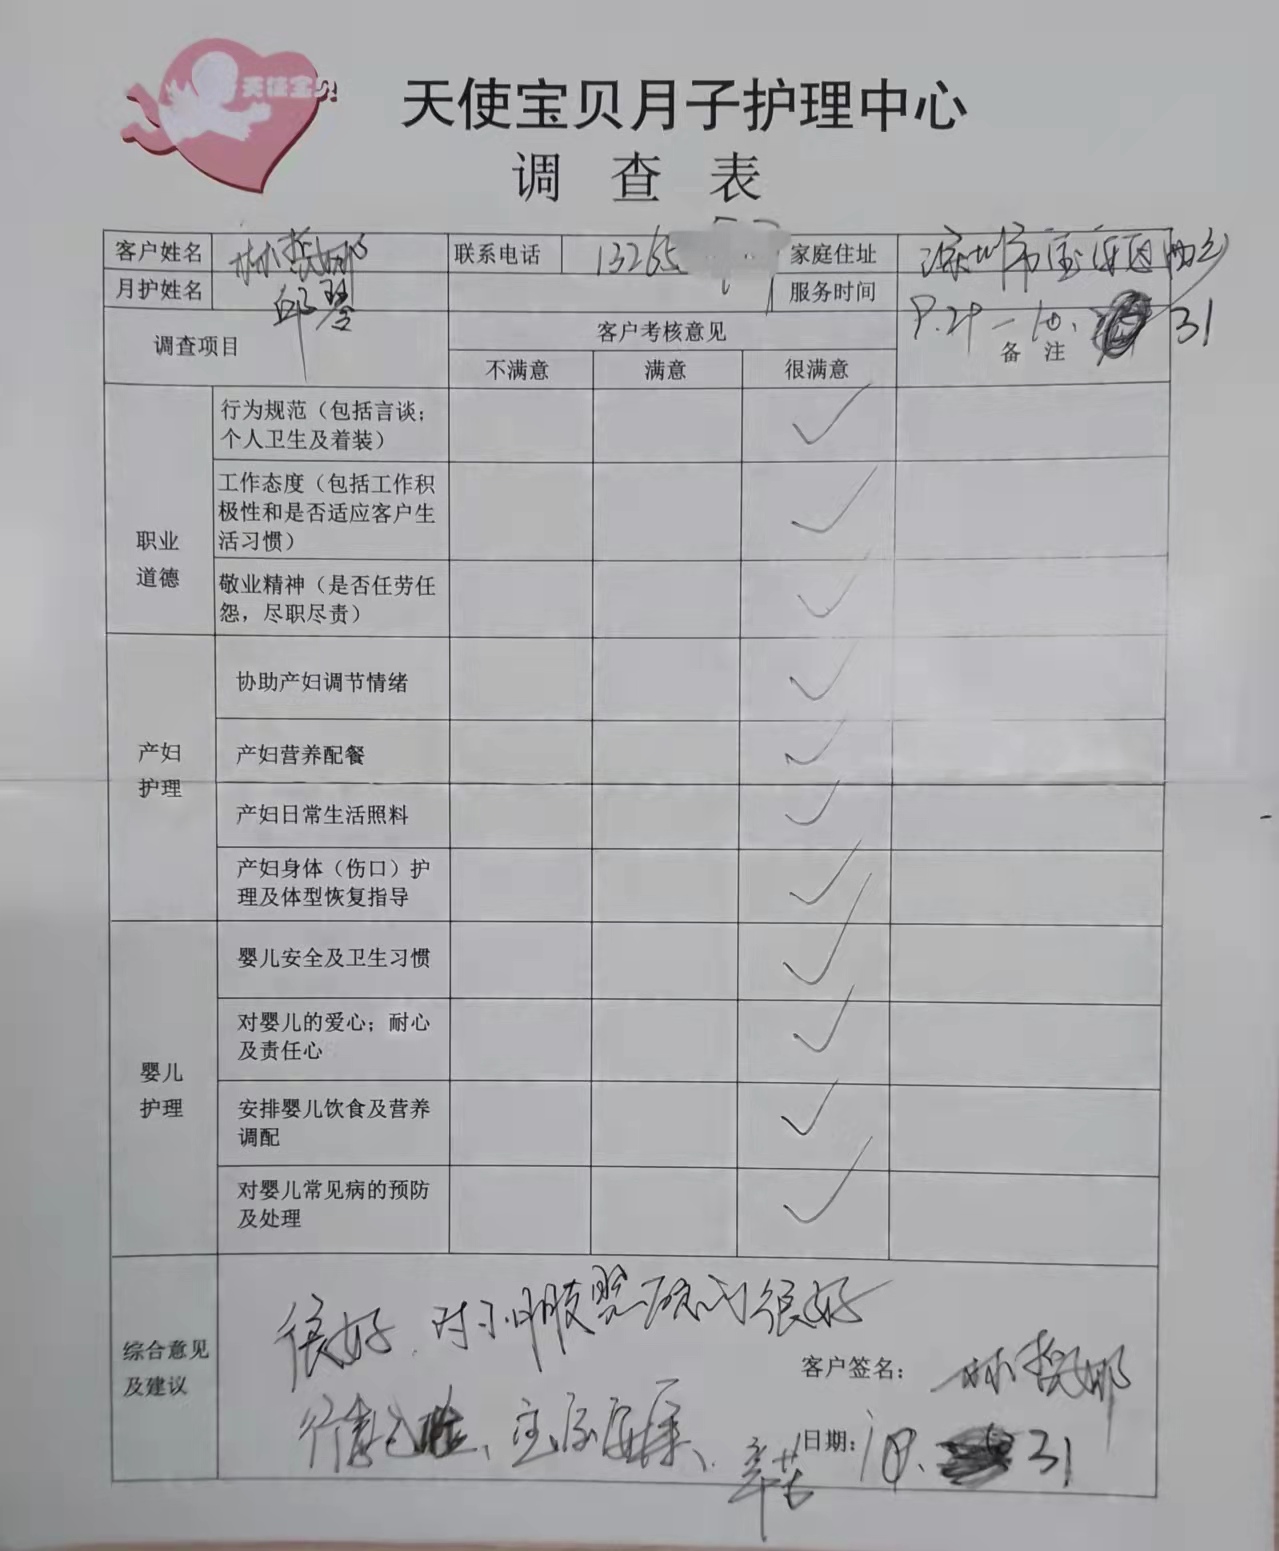 天使宝贝
天使宝贝月子护理中心
调查表
客户姓名 林哲娜 联系电话 13265 家庭住址 深圳市宝安区西乡
月护姓名 邱琴 服务时间 9.29—10. 31
调查项目 客户考核意见 备注
不满意 满意 很满意
职业道德
行为规范（包括言谈；
个人卫生及着装）
工作态度（包括工作积
极性和是否适应客户生
活习惯）
敬业精神（是否任劳任
怨，尽职尽责）
产妇护理
协助产妇调节情绪
产妇营养配餐
产妇日常生活照料
产妇身体（伤口）护
理及体型恢复指导
婴儿护理
婴儿安全及卫生习惯
对婴儿的爱心；耐心
及责任心
安排婴儿饮食及营养
调配
对婴儿常见病的预防
及处理
综合意见及建议
很好、对小 很好
客户签名： 林哲娜
辛苦
日期： 10. 31